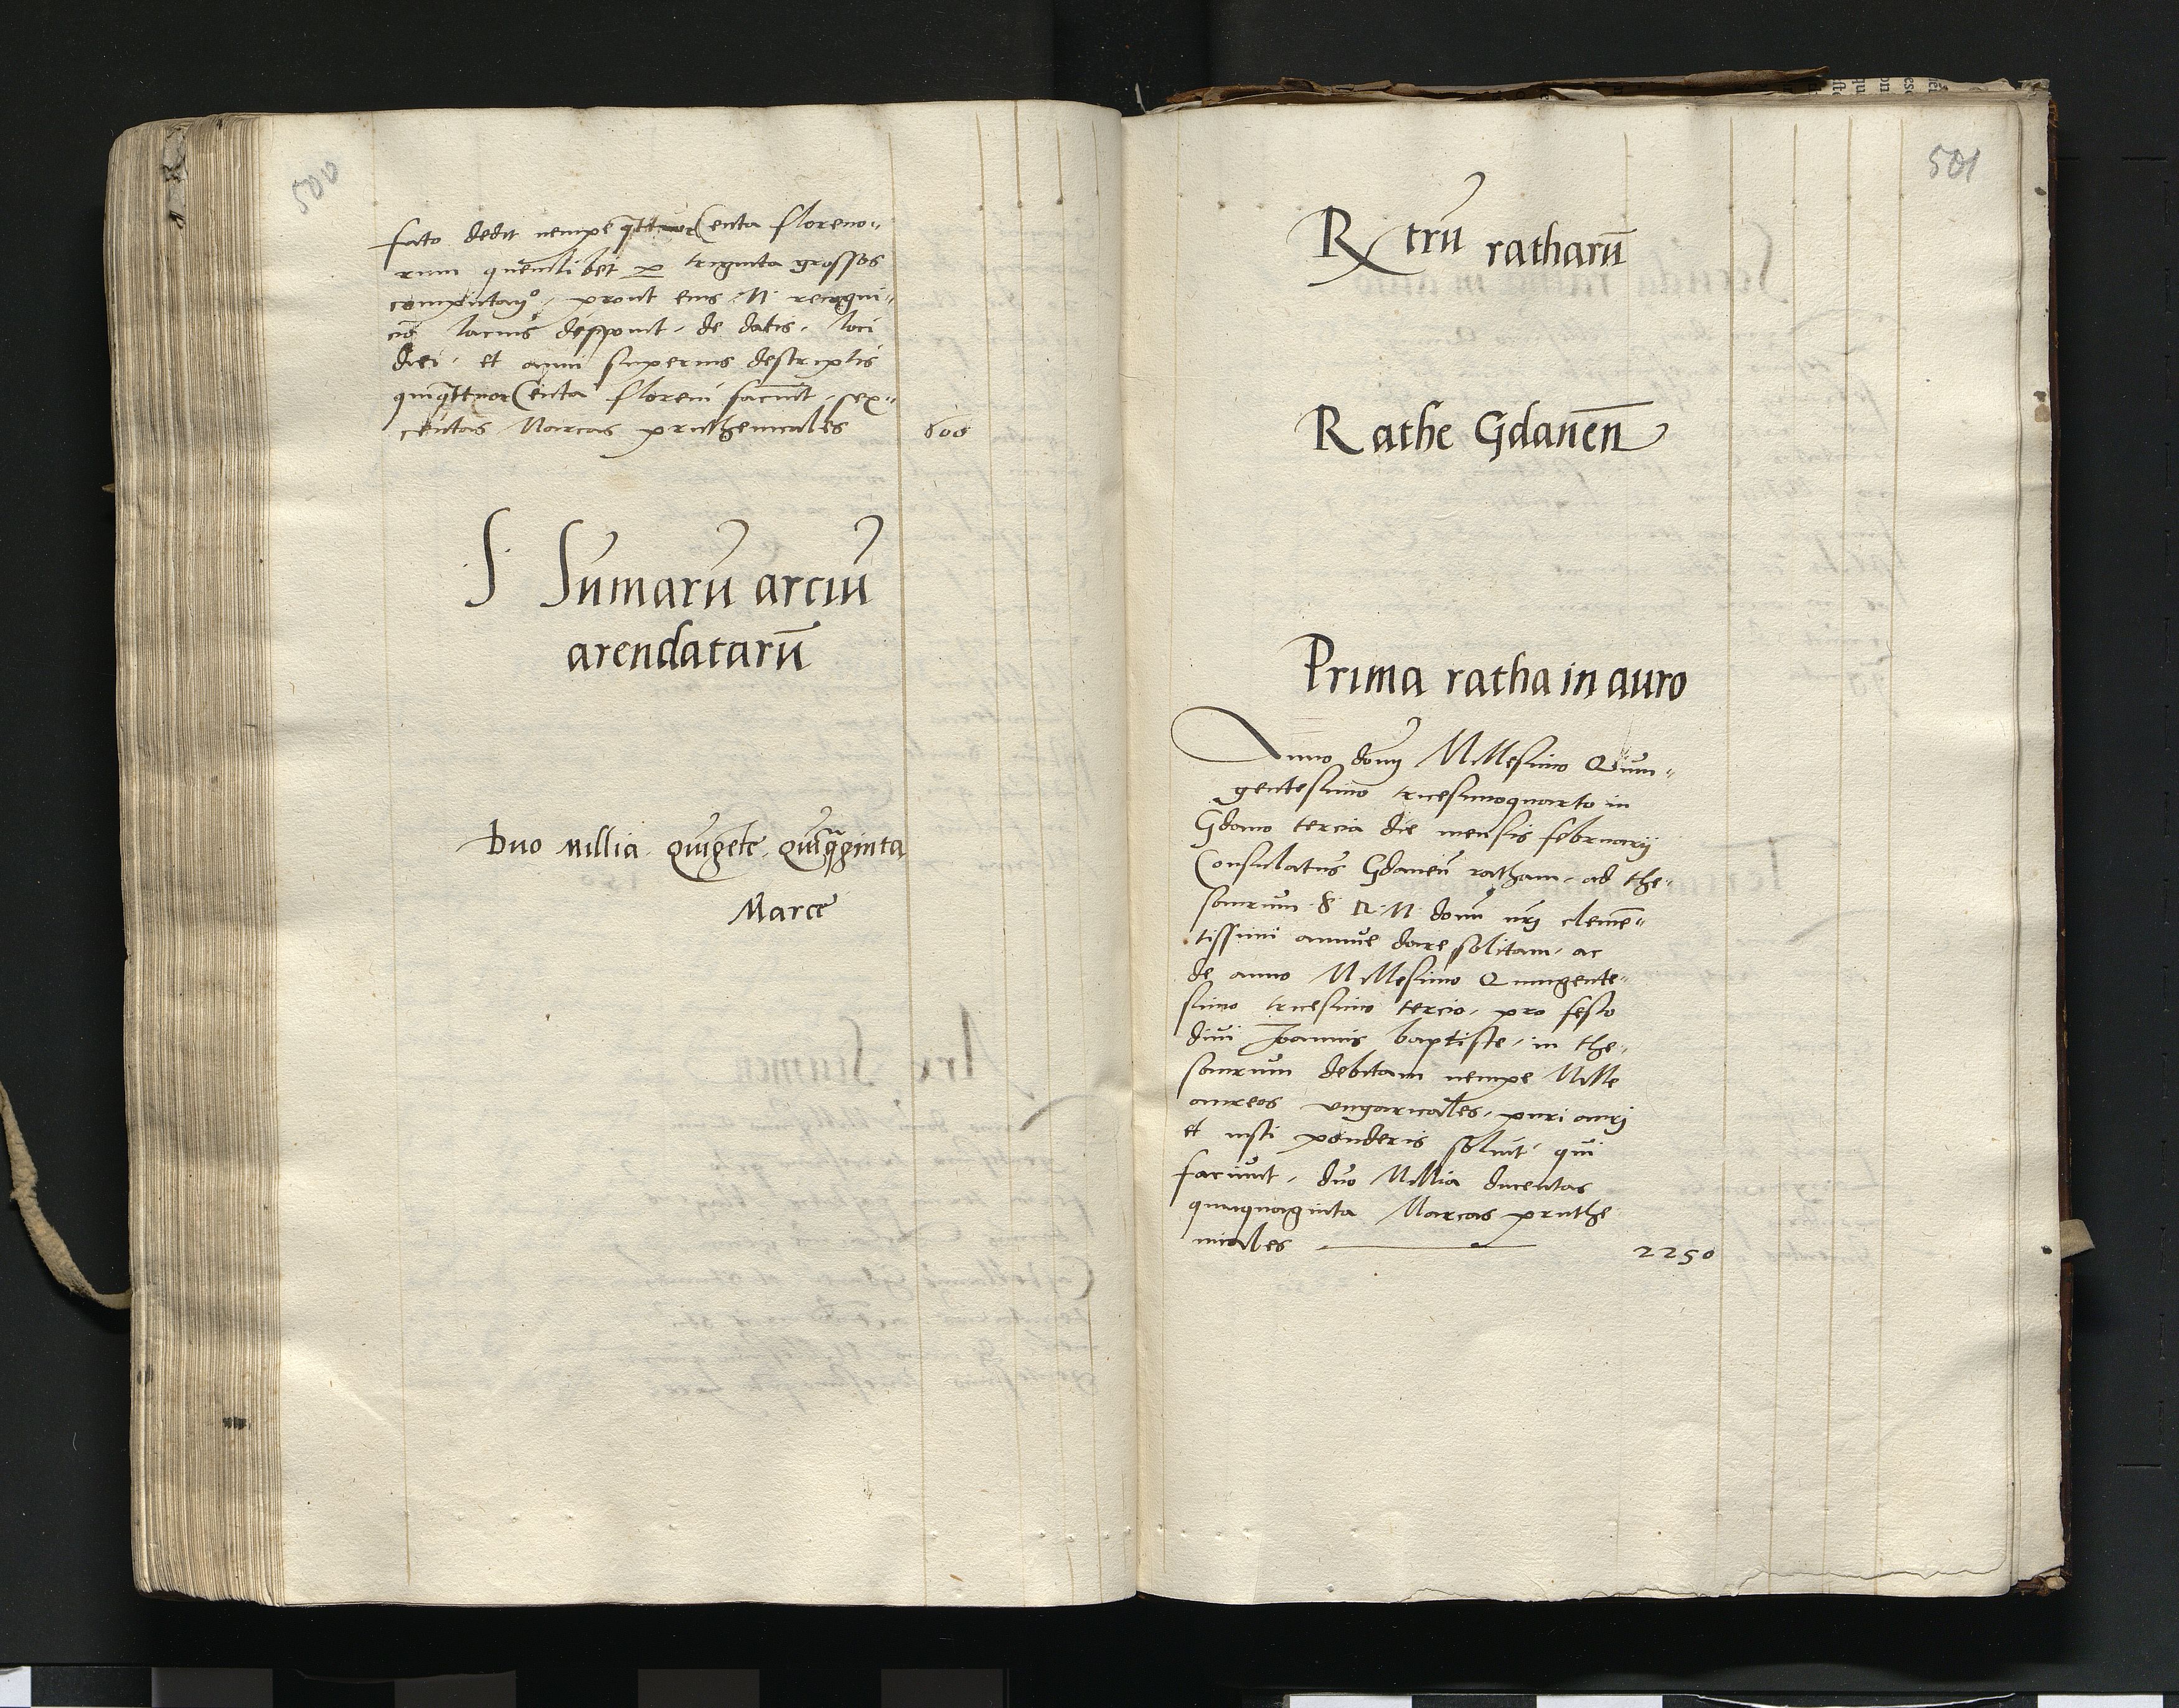 500
fato dedit nempe q̃ttuorCenta floreno„
rum quemlibet ꝑ triginta grossos
computaṅ / prout eius M recogni„
cio lacius depponit, de datis, loci
diei, et anni superius descriptis
quiq̃ttuorCenta floreni faciũt, sex„
centas Marcas pruthenicales 600
S Sũmarũ arciũ
arendatarũ
Duo Millia Quĩgẽte Quĩq̃ginta
Marce
501
R trũ ratharũ
Rathe Gdanen̄
Prima ratha in auro
Anno domĩ Millesimo Quin„
gentesimo tricesimoquarto in
Gdano tercia die mensis februarij
Consulatus Gdaneñ ratham, ad the„
saurum S R M domĩ nrĩ clemẽ„
tissimi annue dare solitam, ac
de anno Millesimo Quingente„
simo tricesimo tercio, pro festo
diui Joannis baptiste, in the„
saurum debitam nempe Mille
aureos vngaricales, puri auri
et iusti ponderis soluit qui
faciunt, duo Millia ducentas
quinquaginta Marcas pruthe
nicales 2250